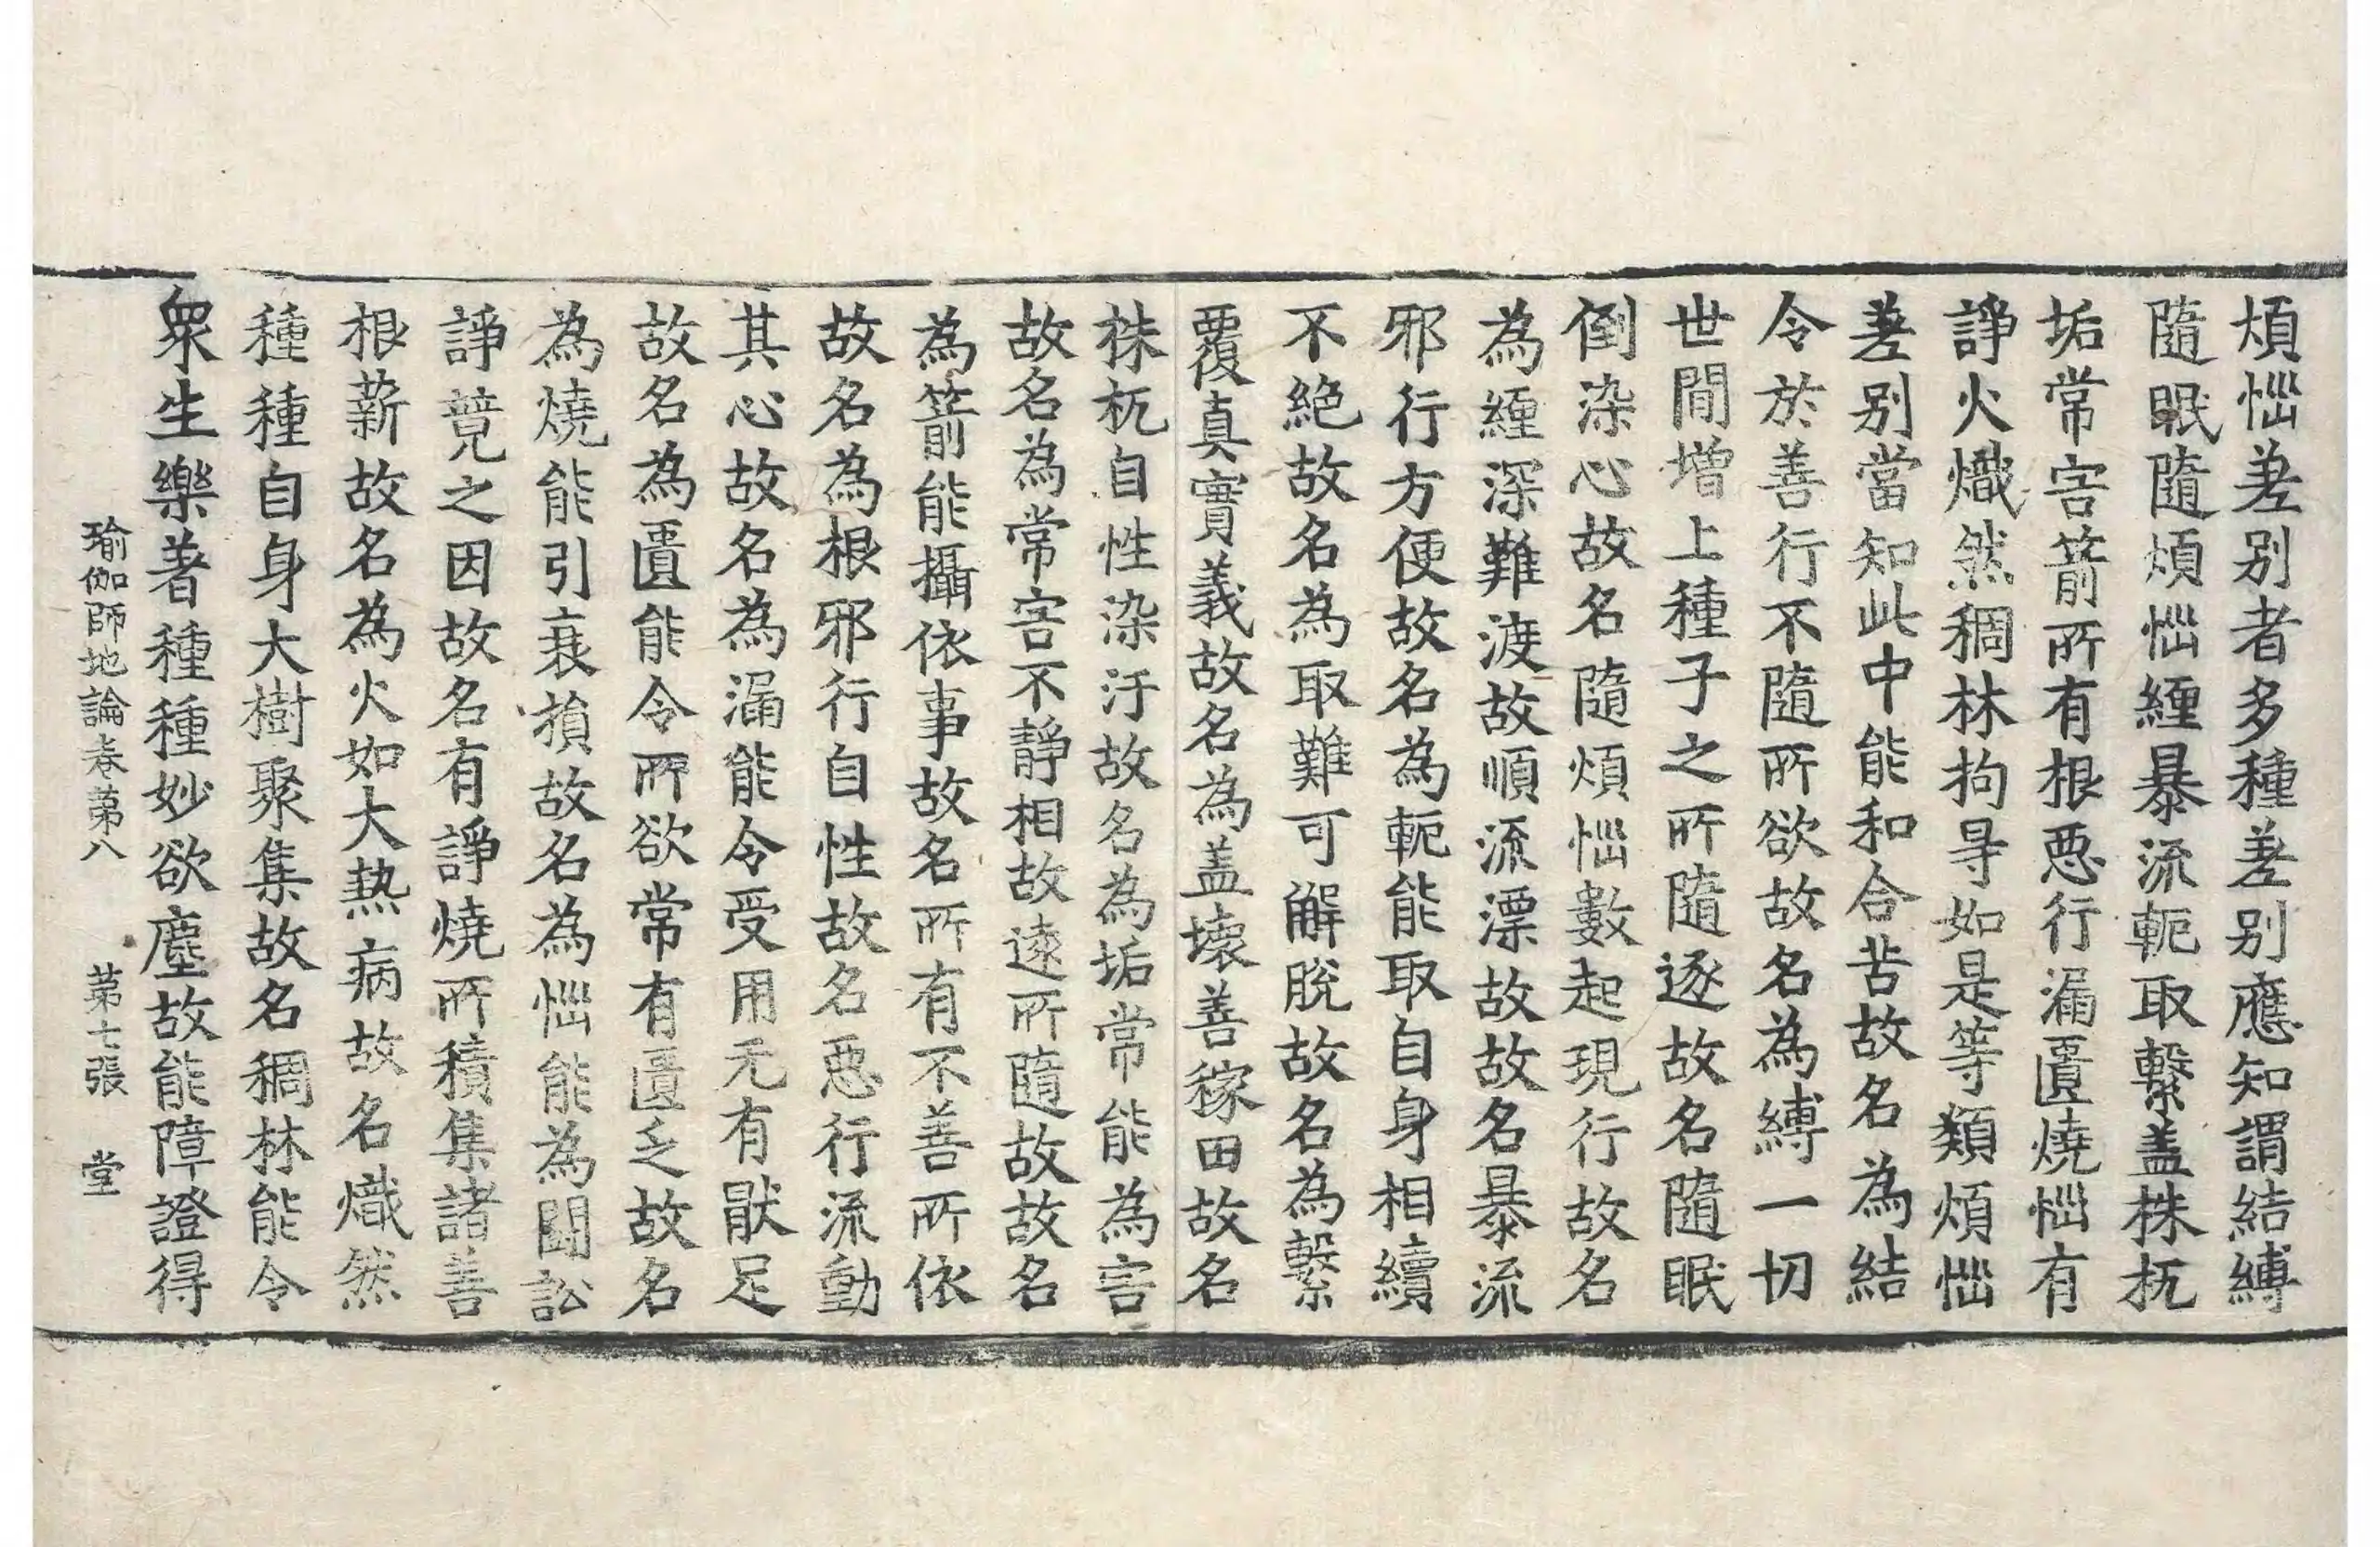 煩惱差别者多種差别應知謂結縛
隨眠隨煩惱纏暴流軛取繫盖株杌
垢常害箭所有根惡行漏匱燒惱有
諍火熾然稠林拘㝵如是等類煩惱
差别當知此中能和合苦故名為結
令於善行不隨所欲故名為縛一切
世間增上種子之所隨逐故名隨眠
倒染心故名隨煩惱數起現行故名
為纏深難渡故順流漂故故名暴流
邪行方便故名為軛能取自身相續
不絶故名為取難可解脫故名為繫
覆真實義故名為盖壞善稼田故名
株杌自性染汙故名為垢常能為害
故名為常害不靜相故遠所隨故故名
為箭能攝依事故名所有不善所依
故名為根邪行自性故名惡行流動
其心故名為漏能令受用无有猒足
故名為匱能令所欲常有匱乏故名
為燒能引衰損故名為惱能為鬪訟
諍竸之因故名有諍燒所積集諸善
根薪故名為火如大熱病故名熾然
種種自身大樹聚集故名稠林能令
衆生樂著種種妙欲塵故能障證得
瑜伽師地論卷第八 第七張 堂